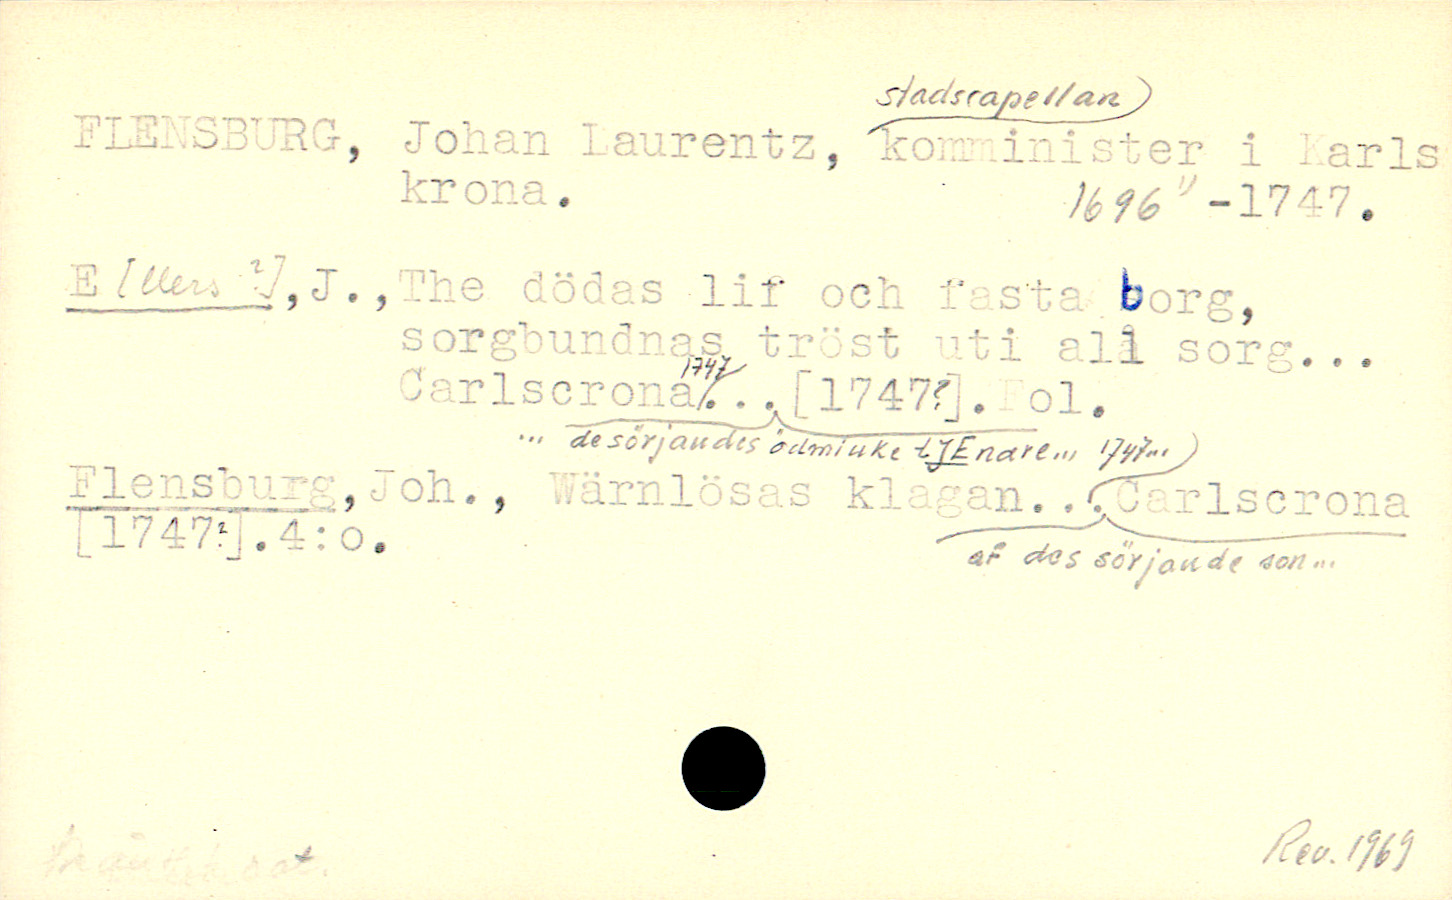 stadscapellan)
FLENSBURG, Johan Laurentz, komminister i Karls
krona. 1696 -1747.
E[llers ?], J., The dödas lif och fasta borg,
sorgbundnas tröst uti all sorg...
1747
Carlscrona... [1747?]. Fol.
... de sörjandes ödmiuke tJEnare... 1747...)
Flensburg, Joh., Wärnlösas klagan... Carlscrona
[1747?]. 4:o.
af des sörjande son...
Rev. 1969